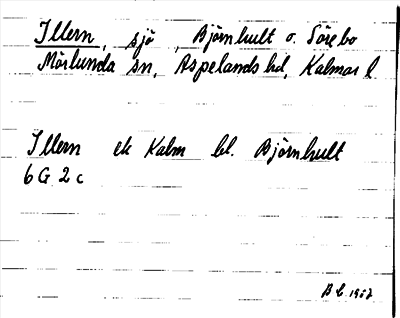 Illern, sjö, Björnhult o. Sörebo
Mörlunda sn, Aspelands hd, Kalmar l
Illern ek Kalm bl. Björnhult
6 G 2 c